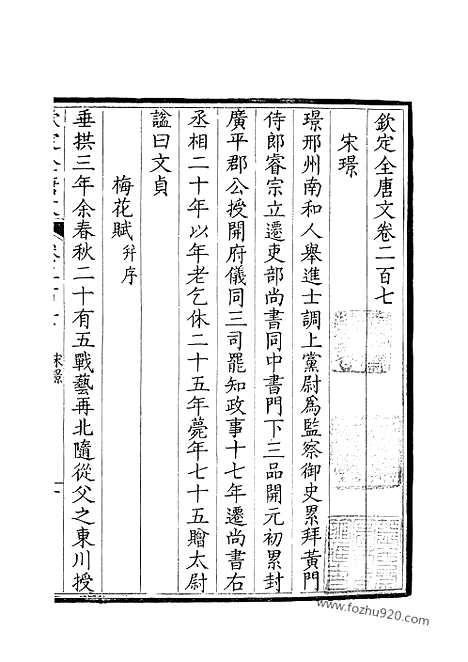 欽定全唐文卷二百七
宋璟
璟邢州南和人舉進士調上黨尉爲監察御史累拜黃門
侍郎睿宗立遷吏部尚書同中書門下三品開元初累封
廣平郡公授開府儀同三司罷知政事十七年遷尚書右
丞相二十年以年老乞休二十五年薨年七十五贈太尉
諡曰文貞
梅花賦并序
垂拱三年余春秋二十有五戰藝再北隨從父之東川授
宋璟
一
www.fozhu920.com